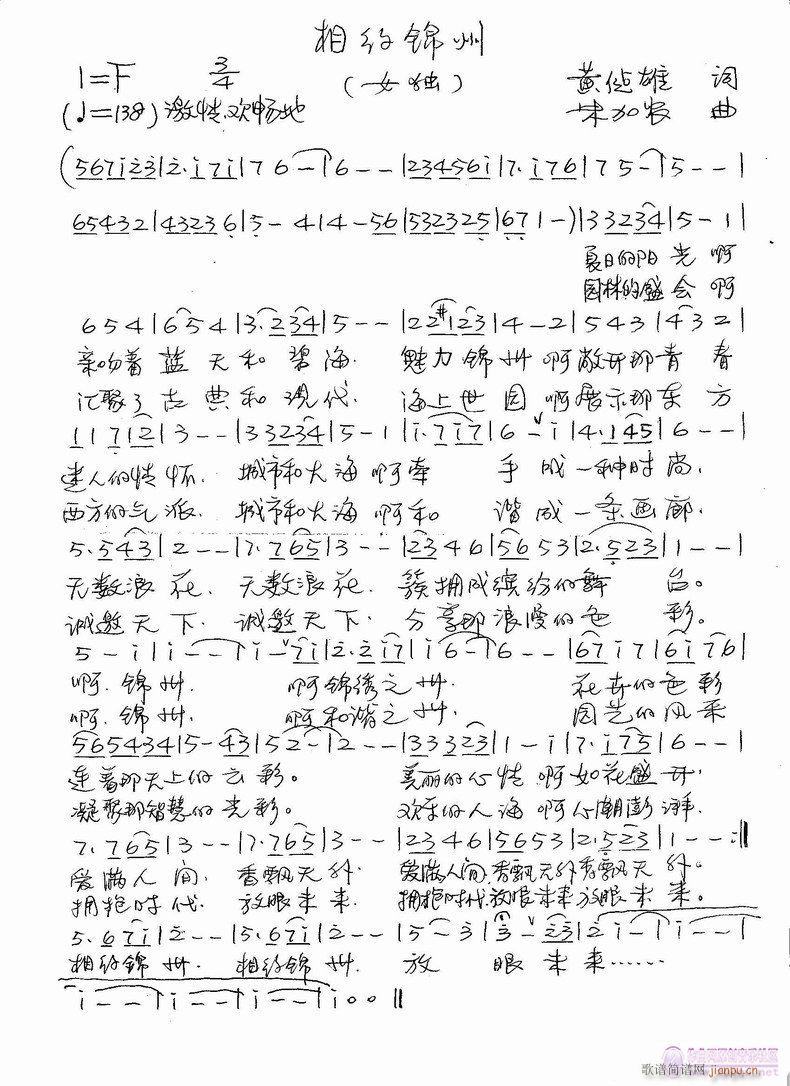 相约锦州
1=F 3/4 (女独) 黄 雄 词
(♩=138) 激情、欢畅地 朱加农 曲
(5671̇2̇3̇|2̇·1̇71̇|76-|6--|234561̇|7·1̇76|75-|5--|
65432|43236|5-4|4-56|532325|671-)|33234|5-1|
夏日的阳光啊
园林的盛会啊
654|654|3·234|5--|22#123|4-2|543|432|
亲吻着蓝天和碧海. 魅力锦州啊敞开那青春
汇聚了古典和现代. 海上世园啊展示那东方
11712|3--|33234|5-1|1̇·71̇7|6-1̇|4·145|6--|
迷人的情怀. 城市和大海啊牵手成一种时尚.
西方的气派. 城市和大海啊和谐成一条画廊.
5·543|2--|7·765|3--|2346|5653|2·523|1--|
无数浪花. 无数浪花. 簇拥成缤纷的舞台。
诚邀天下. 诚邀天下. 分享那浪漫的色彩。
5-1̇|1̇--|1̇-71̇|2̇·2̇1̇7|1̇6-|6--|671̇7|61̇76|
啊.锦州. 啊锦绣之州. 花卉的色彩
啊.锦州. 啊和谐之州. 园艺的风采
565434|5-43|52-|2--|33323|1-1̇|7·1̇75|6--|
连着那天上的云彩。 美丽的心情啊如花盛开.
凝聚那智慧的光彩。 欢乐的人海啊心潮澎湃.
7·765|3--|7·765|3--|2346|5653|2·523|1--:‖
爱满人间. 香飘天外. 爱满人间.香飘天外香飘天外。
拥抱时代. 放眼未来. 拥抱时代.放眼未来放眼未来。
5·671̇|2̇--|5·671̇|2̇--|5-3̇|3̇-2̇3̇|2̇1̇-|1̇--|
相约锦州. 相约锦州. 放眼未来……
1̇--|1̇--|1̇--|1̇00‖
歌谱简谱网
jianpu.cn